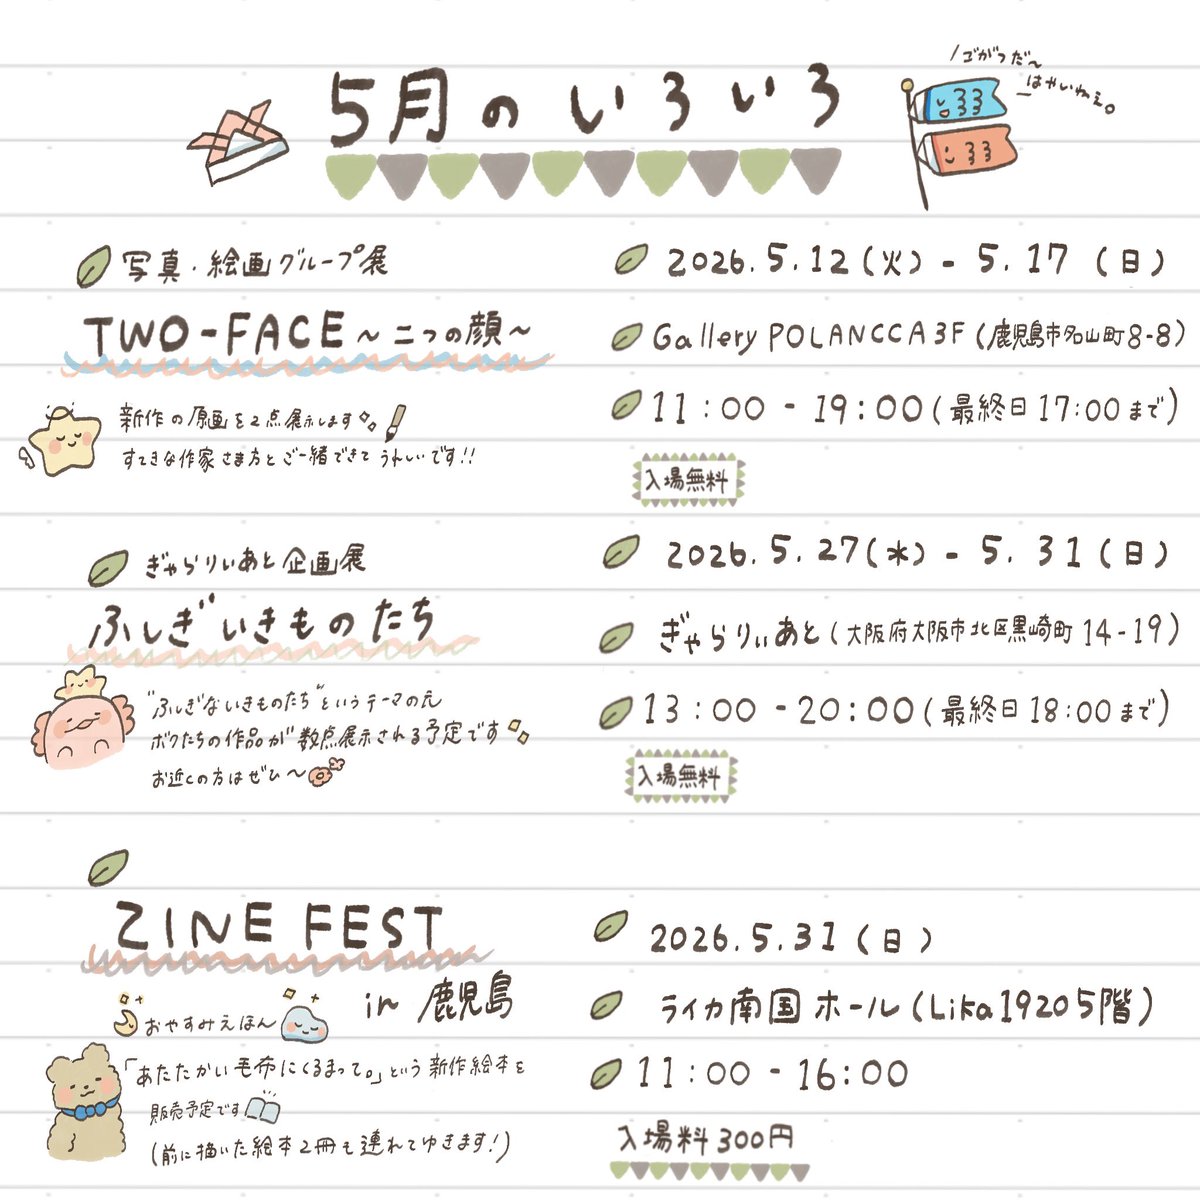 5月のいろいろ
ゴがつだ〜
はやいねぇ。
写真・絵画グループ展
TWO-FACE〜二つの顔〜
新作の原画を2点展示します
すてきな作家さま方とご一緒できてうれしいです!!
2026.5.12(火) - 5.17(日)
Gallery POLANCCA 3F(鹿児島市名山町8-8)
11:00 - 19:00(最終日17:00まで)
入場無料
ぎゃらりぃあと企画展
ふしぎいきものたち
"ふしぎないきものたち"というテーマのえ
ボクたちの作品が数点展示される予定です
お近くの方はぜひ〜
2026.5.27(水) - 5.31(日)
ぎゃらりぃあと(大阪府大阪市北区黒崎町14-19)
13:00 - 20:00(最終日18:00まで)
入場無料
ZINE FEST
in 鹿児島
おやすみえほん
「あたたかい毛布にくるまって。」という新作絵本を
販売予定です
(前に描いた絵本2冊も連れてゆきます!)
2026.5.31(日)
ライカ南国ホール(Lika1920 5階)
11:00 - 16:00
入場料300円